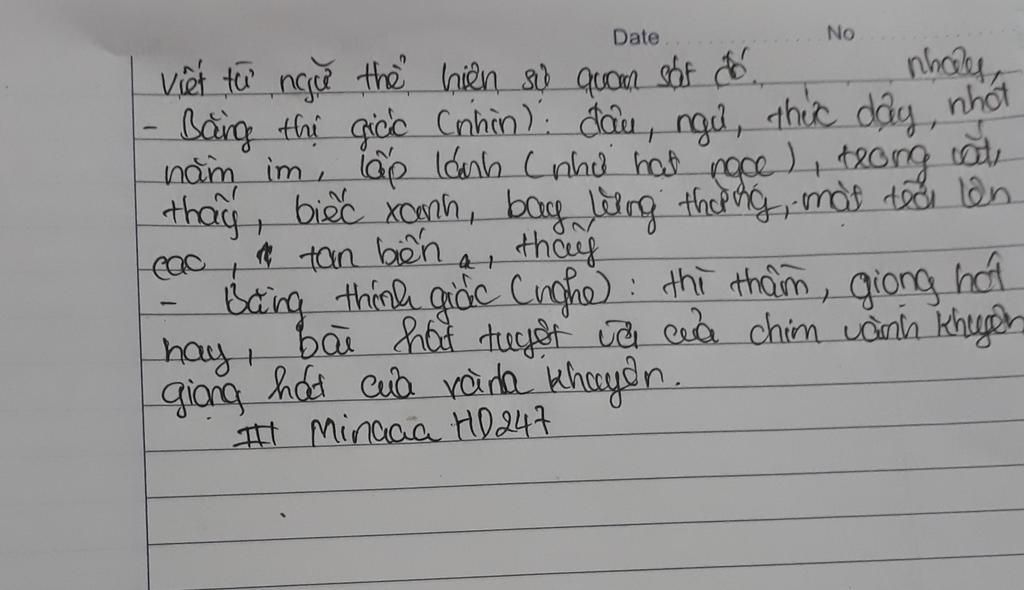 Date No
Viết từ ngữ thể hiện sự quan sát đó. nhảy,
- Bằng thị giác (nhìn): đậu, ngủ, thức dậy, nhót
nằm im, lấp lánh (như hạt ngọc), trong vắt,
thấy, biếc xanh, bay lửng thửng, mặt trời lên
cao, tan biến, thấy
- Bằng thính giác (nghe): thì thầm, giọng hót
hay, bài hát tuyệt vời của chim vành khuyên
giọng hót của vành khuyên.
# Minaaa HD247